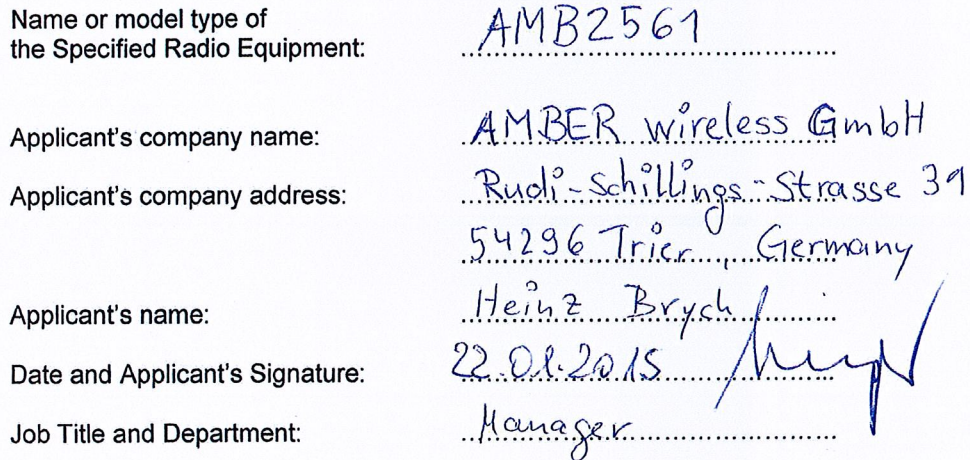 Name or model type of
the Specified Radio Equipment: AMB2561
Applicant's company name: AMBER wireless GmbH
Applicant's company address: Rudi-Schillings-Strasse 31
54296 Trier, Germany
Applicant's name: Heinz Brych
Date and Applicant's Signature: 22.01.2015
Job Title and Department: Manager